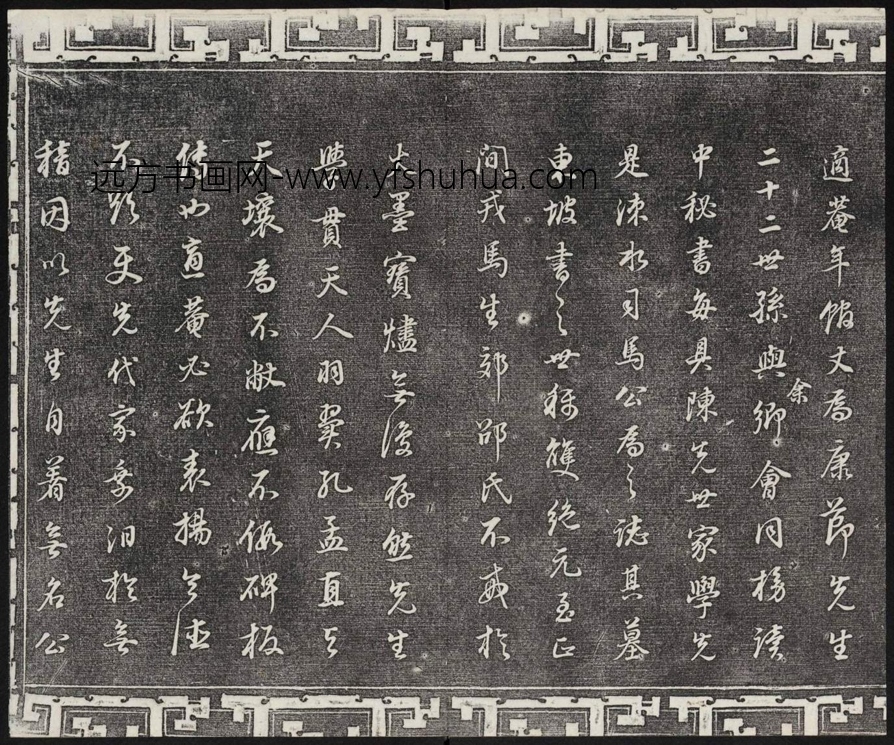 適菴年館丈為康節先生
二十二世孫與余卿會同榜讀
中秘書每具陳先世家學先
是涑水司馬公為之誌其墓
東坡書之世稱雙絕元至正
間戎馬生郊邵氏不戒於
火墨寶燼無復存然先生
學貫天人羽翼孔孟直與
天壤為不敝應不假碑板
傳也適菴必欲表揚令德
不致先代家乘汨於無
稽因以先生自著無名公
远方书画网-www.yfshuhua.com